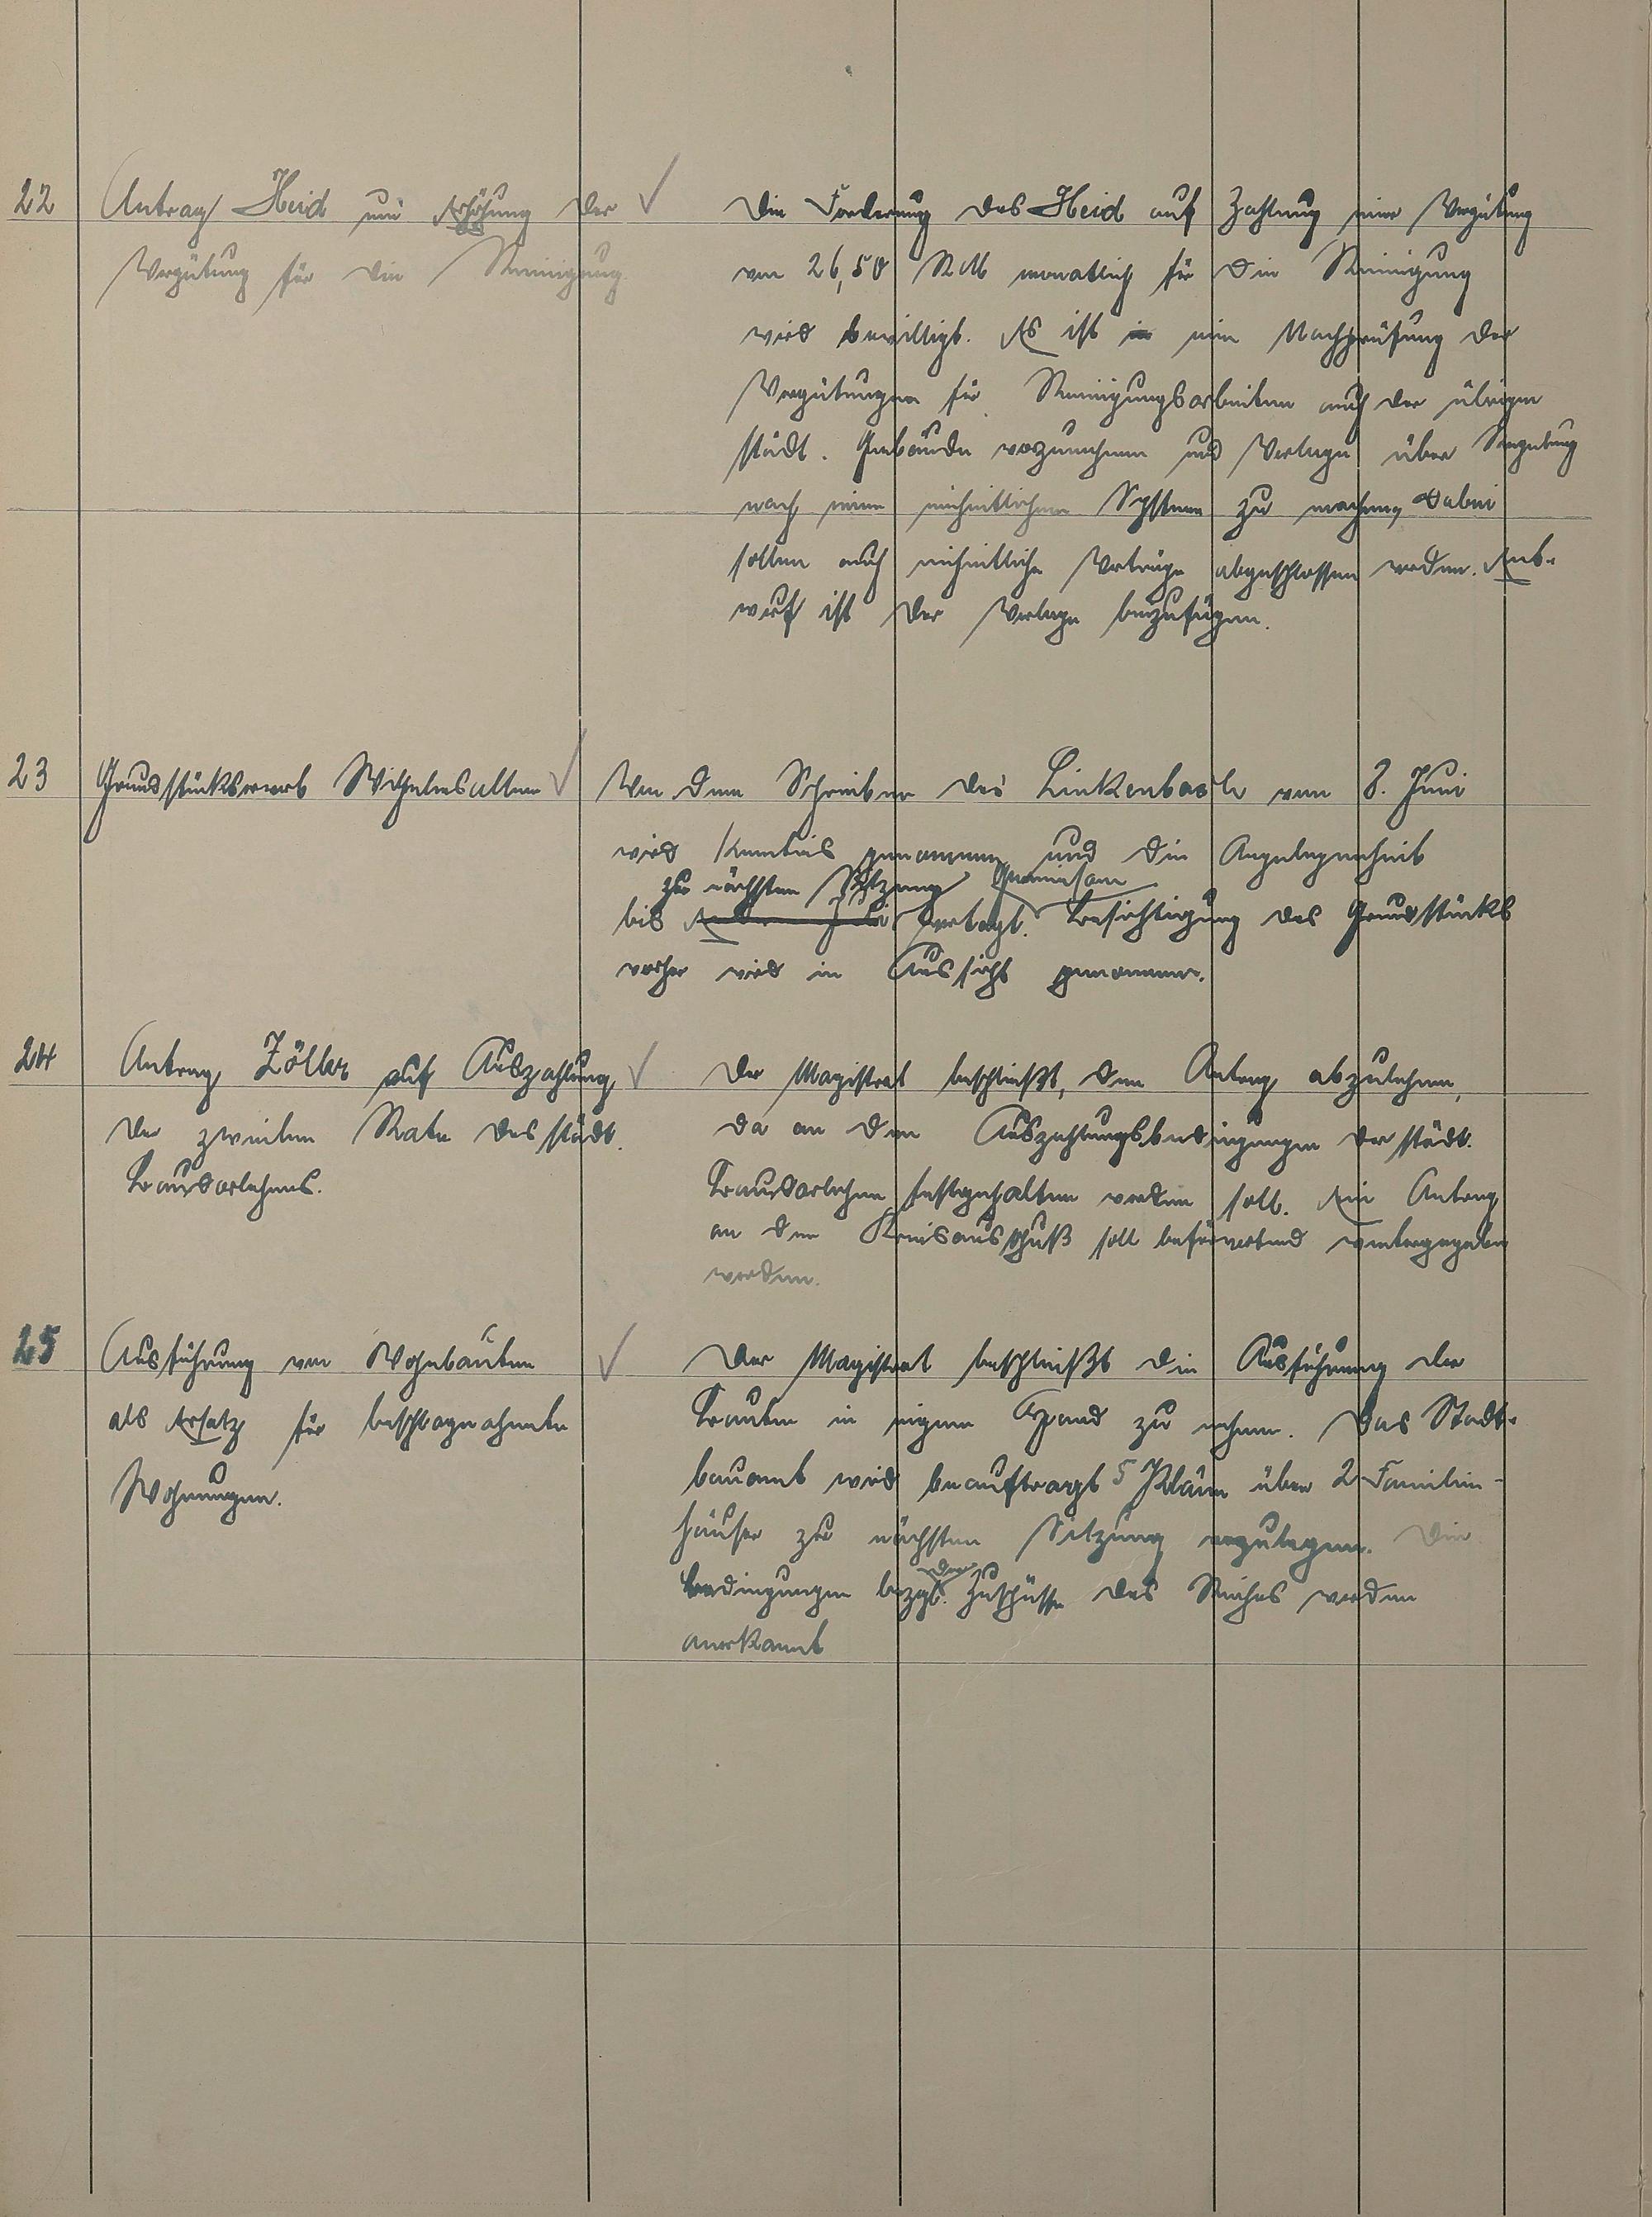 22
Antrag Heid um Erhöhung der
Vergütung für die Reinigung.
Die Forderung des Heid auf Zahlung einer Vergütung
von 26,50 RM monatlich für die Reinigung
wird bewilligt. Es ist eine Nachprüfung der
Vergütungen für Reinigungsarbeiten auch der übrigen
städt. Gebäude vorzunehmen und Vorlage über Regelung
nach einem einheitlichen System zu machen, dabei
sollen auch einheitliche Verträge abgeschlossen werden. Ent-
wurf ist der Vorlage beizufügen.
23
Grundstückserwerb Wilhelmsallee
Von dem Schreiben des Linkenbach vom 8. Juni
wird Kenntnis genommen und die Angelegenheit
zur nächsten Sitzung Gemeinsame
bis Ende Juli vertagt. Besichtigung des Grundstücks
vorher wird in Aussicht genommen.
24
Antrag Zöller auf Auszahlung
der zweiten Rate des städt.
Baudarlehens.
Der Magistrat beschließt, den Antrag abzulehnen,
da an den Auszahlungsbedingungen der städt.
Baudarlehen festgehalten werden soll. Ein Antrag
an den Kreisausschuß soll befürwortend weitergegeben
werden.
25
Ausführung von Wohnbauten
als Ersatz für beschlagnahmte
Wohnungen.
Der Magistrat beschließt die Ausführung der
Bauten in eigene Hand zu nehmen. Das Stadt-
bauamt wird beauftragt 5 Pläne über 2 Familien-
häuser zur nächsten Sitzung vorzulegen. Die
der
Bedingungen bezgl. Zuschüsse des Reiches werden
anerkannt